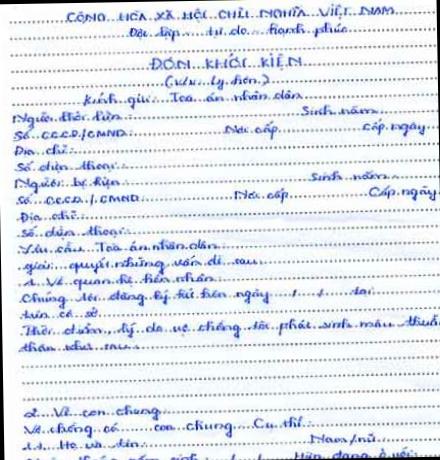 CỘNG HÒA XÃ HỘI CHỦ NGHĨA VIỆT NAM
Độc lập tự do hạnh phúc
ĐƠN KHỞI KIỆN
(V/v: Ly hôn.)
Kính gửi: Tòa án nhân dân
Người khởi kiện: Sinh năm
Số CCCD/CMND: Nơi cấp Cấp ngày
Địa chỉ:
Số điện thoại:
Người bị kiện: Sinh năm
Số CCCD/CMND: Nơi cấp Cấp ngày
Địa chỉ:
Số điện thoại:
Yêu cầu Tòa án nhân dân
giải quyết những vấn đề sau:
1. Về quan hệ hôn nhân:
Chúng tôi đăng ký kết hôn ngày / / tại
trên cơ sở
Thời điểm, lý do vợ chồng tôi phát sinh mâu thuẫn
thân như sau:
2. Về con chung
Vợ chồng có con chung Cụ thể:
Họ và tên: Nam/nữ